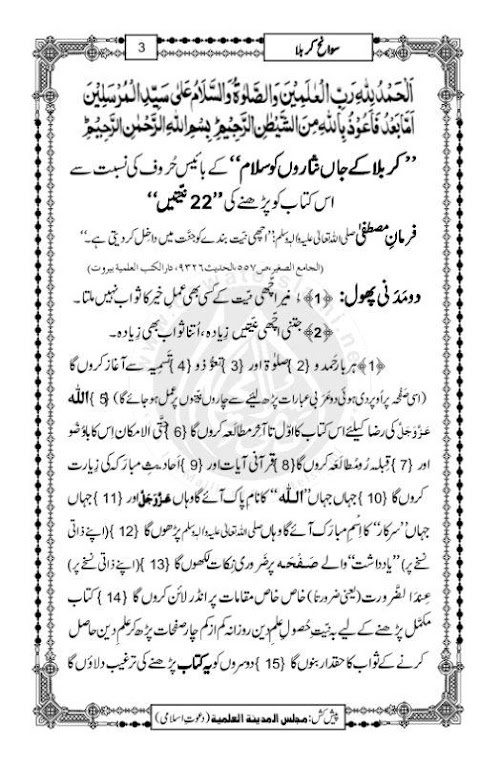 3
سوانح کربلا
اَلْحَمْدُ لِلّٰهِ رَبِّ الْعٰلَمِیْنَ وَالصَّلٰوةُ وَالسَّلَامُ عَلٰی سَیِّدِ الْمُرْسَلِیْنَ
اَمَّا بَعْدُ فَاَعُوْذُ بِاللّٰهِ مِنَ الشَّیْطٰنِ الرَّجِیْمِ ؕ بِسْمِ اللّٰهِ الرَّحْمٰنِ الرَّحِیْمِ ؕ
’’کربلا کے جاں نثاروں کو سلام‘‘ کے بائیس حُروف کی نسبت سے
اس کتاب کو پڑھنے کی ’’22 نیّتیں‘‘
فرمانِ مصطفٰی صلی اللہ تعالیٰ علیہ والہ وسلم: ’’اچھی نیّت بندے کو جنّت میں داخِل کر دیتی ہے۔‘‘
(الجامع الصغیر،ص۵۵۷،الحدیث۹۳۲۶، دارالکتب العلمیة بیروت)
دو مَدَنی پھول: ﴿1﴾ بغیر اچّھی نیّت کے کسی بھی عملِ خیر کا ثواب نہیں ملتا۔
﴿2﴾ جتنی اچّھی نیّتیں زیادہ، اُتنا ثواب بھی زیادہ۔
﴿1﴾ ہر بار حَمد و {2} صلوٰۃ اور {3} تعوُّذ و {4} تَسمِیہ سے آغاز کروں گا
(اسی صَفْحَہ پر اُوپر دی ہوئی دو عَرَبی عبارات پڑھ لینے سے چاروں نیّتوں پر عمل ہو جائے گا) {5} اللّٰہ
عَزَّوَجَلَّ کی رضا کیلئے اس کتاب کا اوّل تا آخِر مطالَعہ کروں گا {6} حتَّی الْامکان اِس کا باوُضُو
اور {7} قِبلہ رُو مُطالَعَہ کروں گا {8} قرآنی آیات اور {9} اَحادیثِ مبارکہ کی زیارت
کروں گا {10} جہاں جہاں ’’اللّٰہ‘‘ کا نام پاک آئے گا وہاں عَزَّوَجَلَّ اور {11} جہاں
جہاں ’’سرکار‘‘ کا اِسْمِ مبارک آئے گا وہاں صلی اللہ تعالیٰ علیہ والہ وسلم پڑھوں گا {12} (اپنے ذاتی
نسخے پر) ’’یادداشت‘‘ والے صَفْحَہ پر ضَروری نِکات لکھوں گا {13} (اپنے ذاتی نسخے پر)
عِندَ الضَّرورت (یعنی ضرورتاً) خاص خاص مقامات پر انڈر لائن کروں گا {14} کتاب
مکمَّل پڑھنے کے لیے بہ نیّتِ حُصولِ علمِ دین روزانہ کم از کم چار صفحات پڑھ کر علمِ دین حاصل
کرنے کے ثواب کا حقدار بنوں گا {15} دوسروں کو یہ کتاب پڑھنے کی ترغیب دلاؤں گا
پیش کش: مجلس المدینة العلمیة (دعوتِ اسلامی)